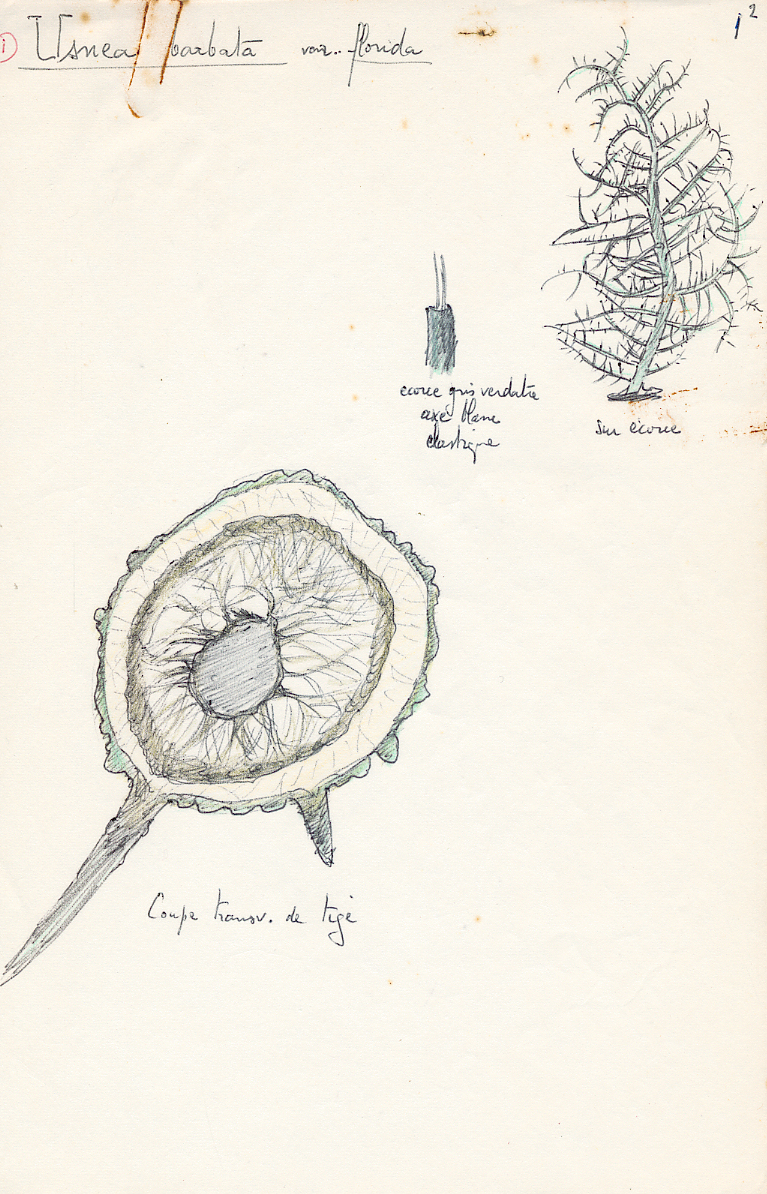 1 Usnea barbata var. florida
1²
ecorce gris verdatre
axe blanc
elastique
sur ecorce
Coupe transv. de tige